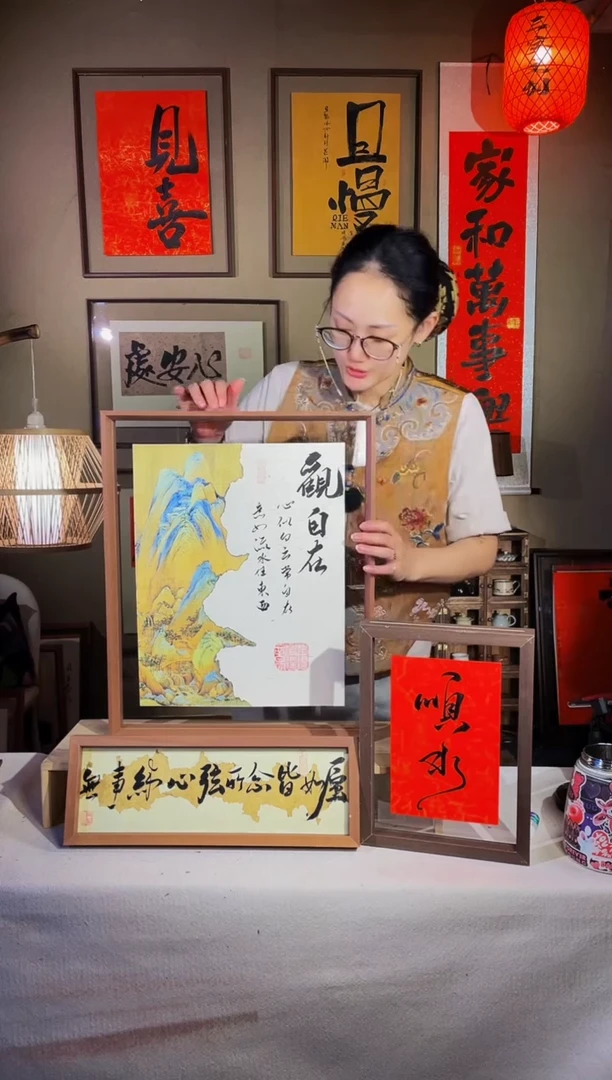 見喜
且慢
QIE
家和萬事興
心安處
觀自在
心似白云常自在
意如流水任東西
無事絆心弦所念皆如愿
順水